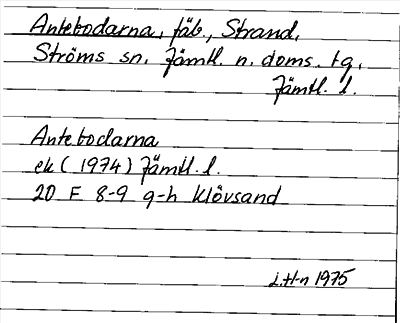 Antebodarna, fäb., Strand,
Ströms sn. Jämtl. n. doms. tg.
Jämtl. l.
Antebodarna
ek (1974) Jämtl. l.
20 F 8-9 g-h Klövsand
L.H-n 1975